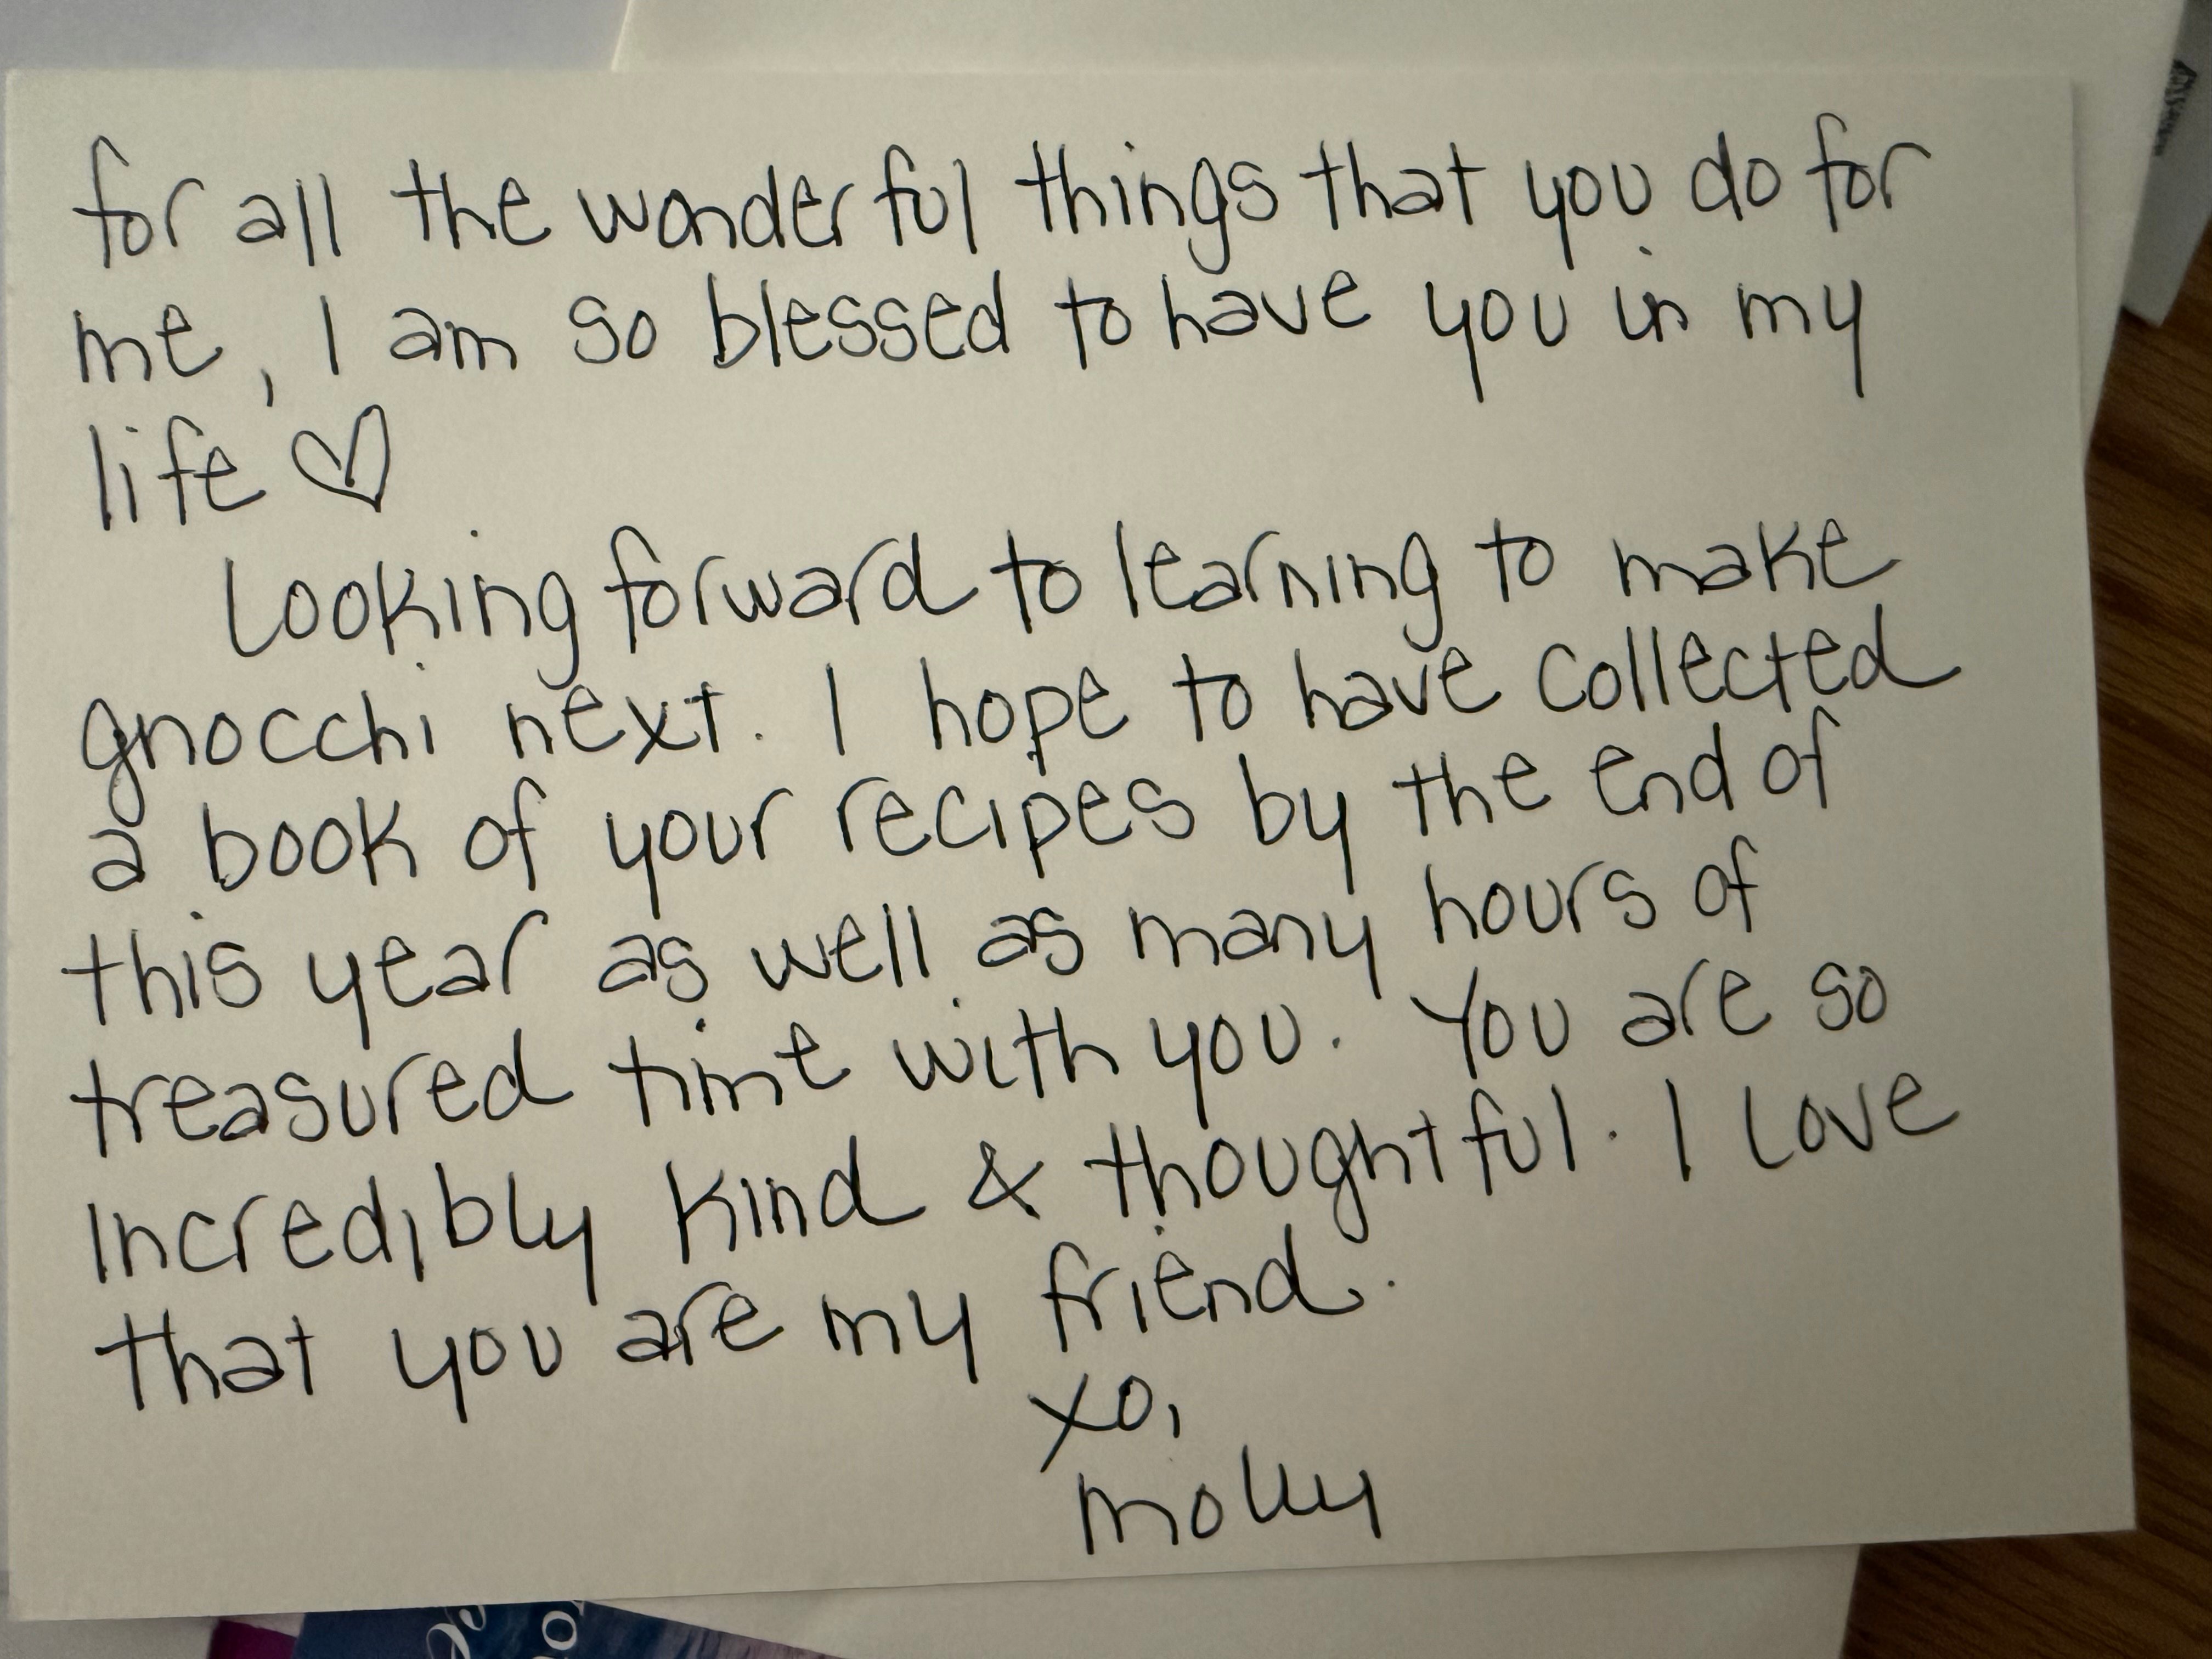 for all the wonderful things that you do for
me, I am so blessed to have you in my
life ♡
Looking forward to learning to make
gnocchi next. I hope to have collected
a book of your recipes by the end of
this year as well as many hours of
treasured time with you. You are so
incredibly kind & thoughtful. I love
that you are my friend.
xo,
molly